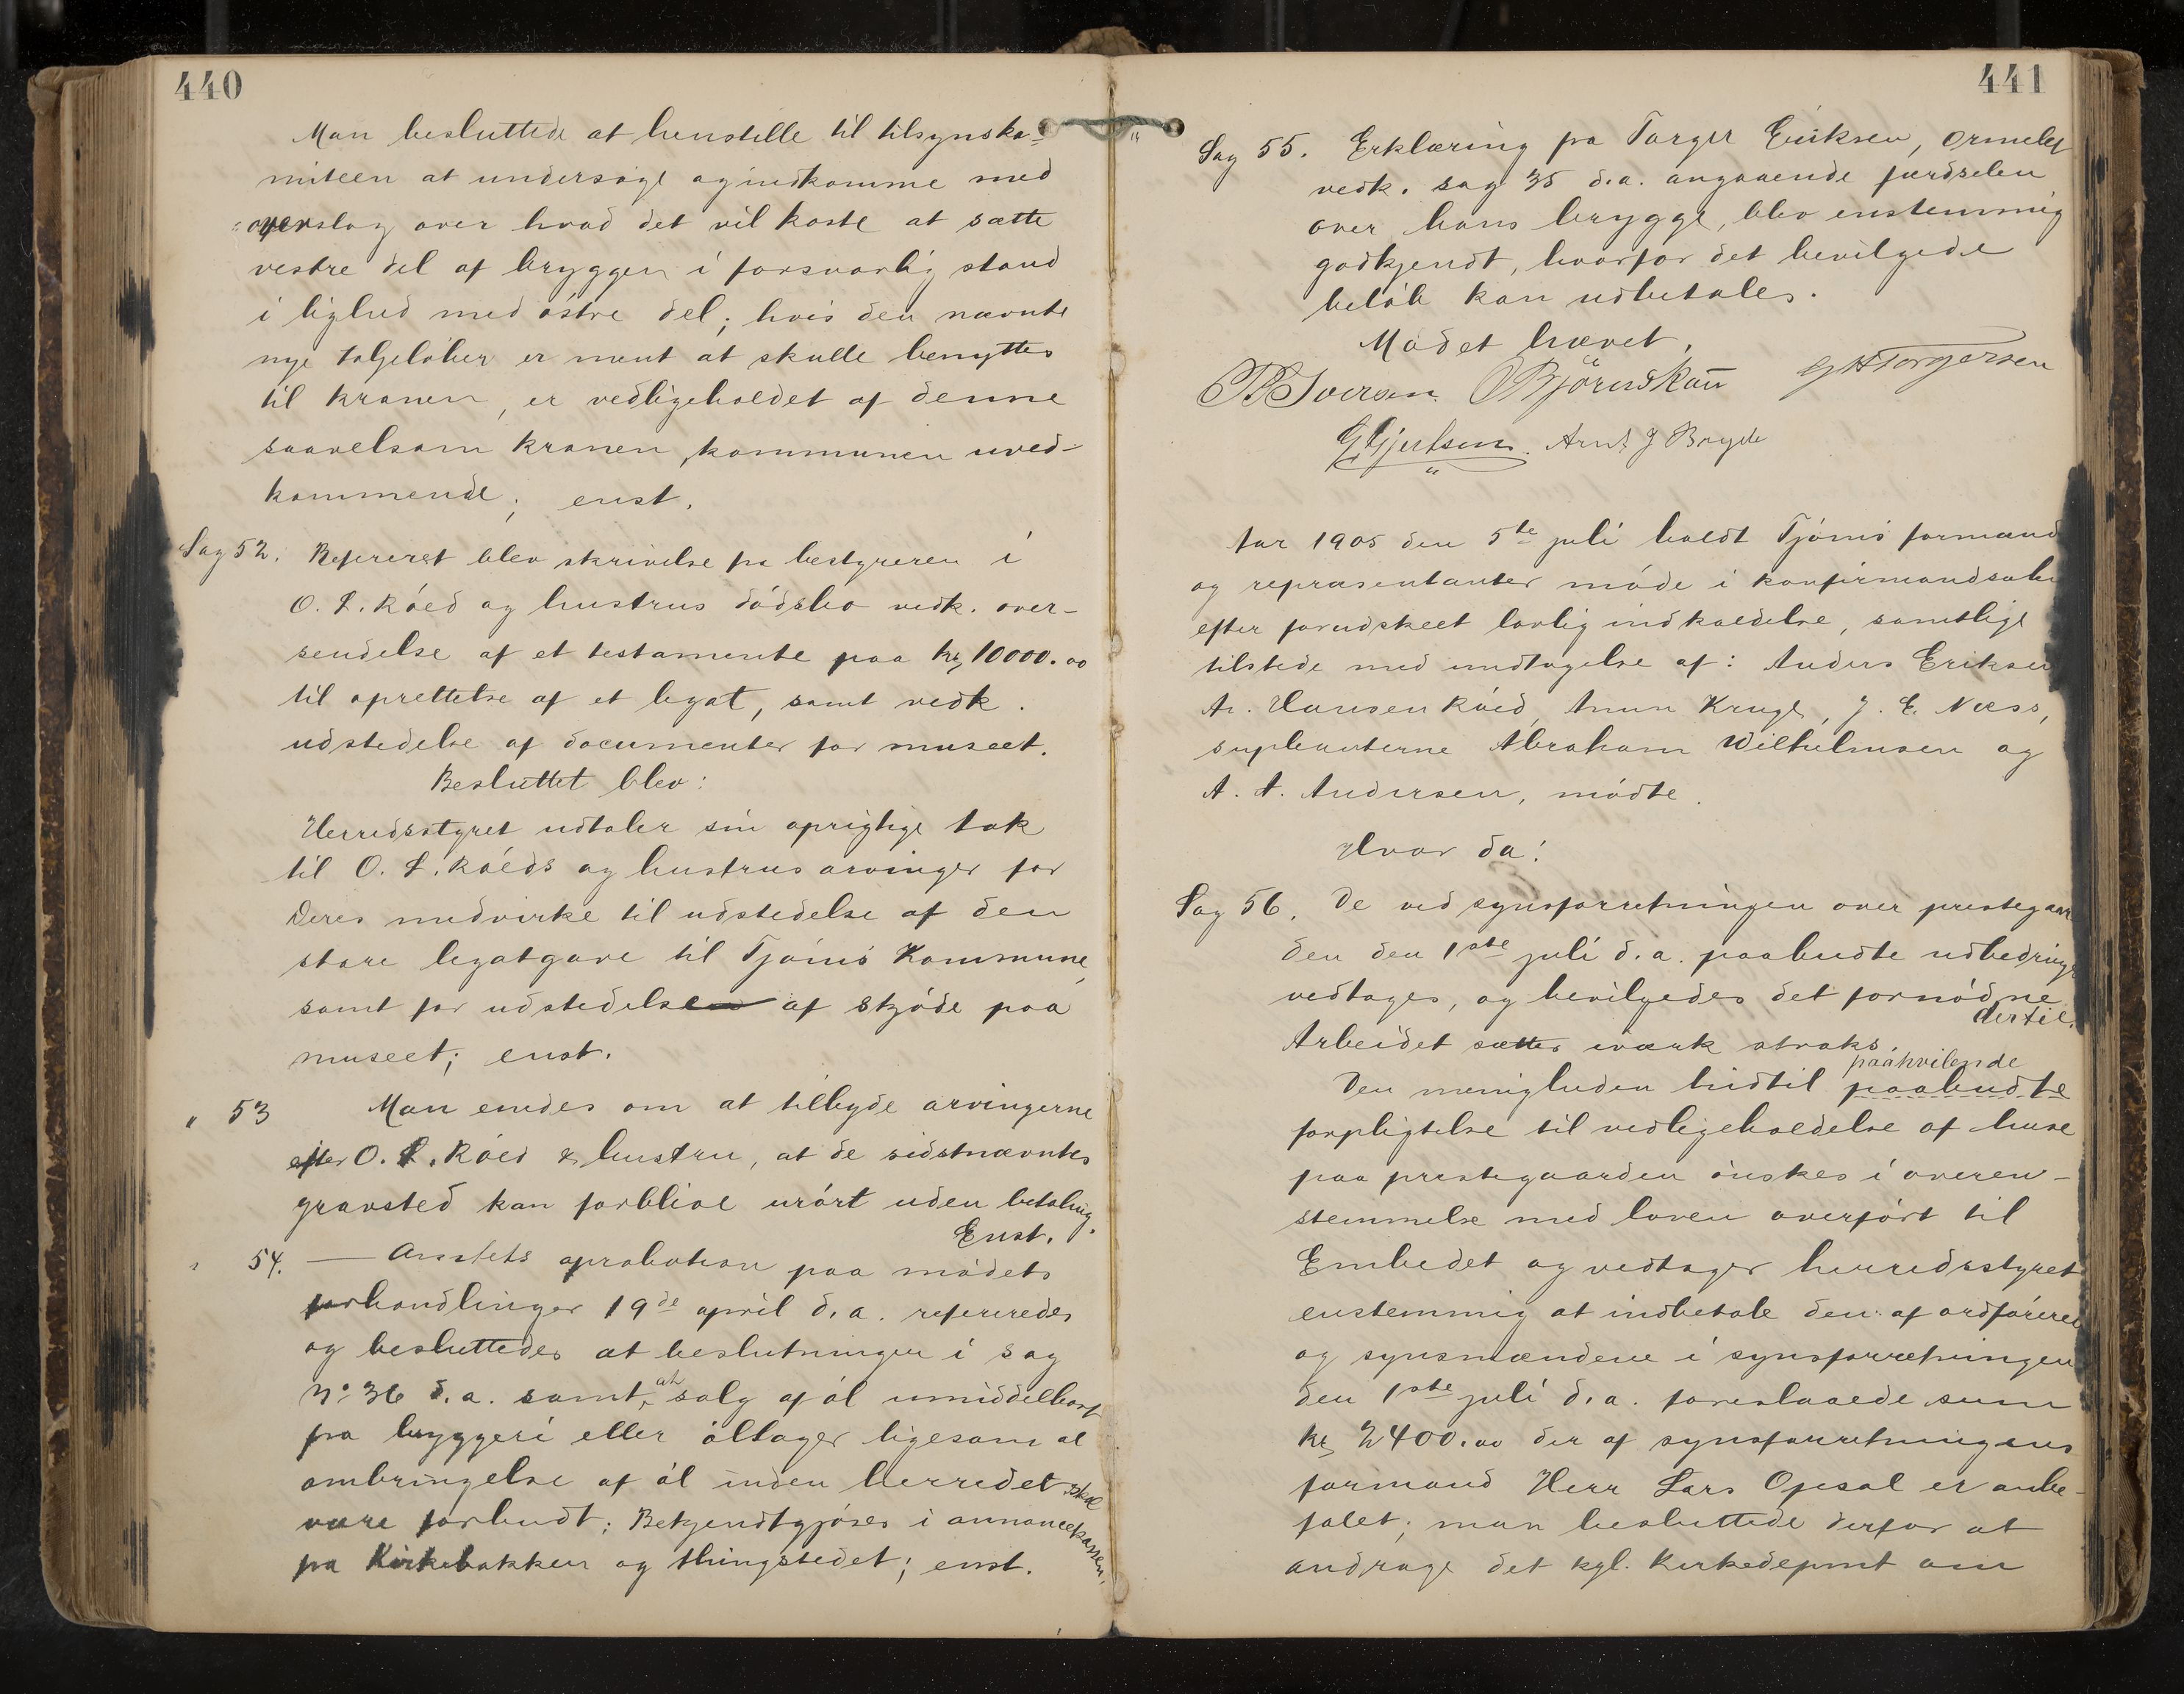 440
Man besluttede at henstille til tilsynsko-
miteen at undersøge og indkomme med
overslag over hvad det vil koste at sætte
vestre del af bryggen i forsvarlig stand
i lighed med østre del; hvis den nævnte
nye taljeløber er ment at skulle benyttes
til kranen, er vedligeholdet af denne
saavelsom kranen, kommunen uved-
kommende; enst.
Sag 52. Refereret blev skrivelse fra bestyreren i
O. L. Røed og hustrus dødsbo vedk. over-
sendelse af et testamente paa kr 10000.00
til oprettelse af et legat, samt vedk.
udstedelse af documenter for museet.
Besluttet blev:
Herredsstyret udtaler sin oprigtige tak
til O. L. Røeds og hustrus arvinger for
Deres medvirke til udstedelse af den
store legatgave til Tjømø Kommune,
samt for udstedelse af skjøde paa
museet; enst.
" 53 Man enedes om at tilbyde arvingerne
efter O. L. Røed & hustru, at de sidstnævntes
gravsted kan forblive urørt uden betaling.
Enst.
" 54. — Amtets aprobation paa mødets
forhandlinger 19de april d. a. refereredes
og besluttedes at beslutningen i sag
No 36 d. a. samt, at salg af øl umiddelbart
fra bryggeri eller øllager ligesom al
ombringelse af øl inden herredet skal
være forbudt; Bekjendtgjøres i annoncekassen
paa Kirkebakken og thingstedet; enst.
441
Sag 55. Erklæring fra Torger Eriksen, Ormelet
vedk. sag 35 d. a. angaaende færdselen
over hans brygge, blev enstemmig
godkjendt, hvorfor det bevilgede
beløb kan udbetales.
Mødet hævet.
B Iversen O Bjørnskau G H Torgersen
G Gjertsen. Arnt J Bryde
Aar 1905 den 5te juli holdt Tjømø formænd
og repræsentanter møde i konfirmandsalen
efter forudskeet lovlig indkaldelse, samtlige
tilstede med undtagelse af: Anders Eriksen
A. Hansen Røed, Anun Kruge, J. E. Næss,
suplenterne Abraham Wilhelmsen og
A. A. Andersen, mødte.
Hvor da:
Sag 56. De ved synsforretningen over prestegaar
den den 1ste juli d. a. paabudte udbedringer
vedtages, og bevilgedes det fornødne
dertil.
Arbeidet sættes iværk straks.
paahvilende
Den menigheden hidtil paabudte
forpligtelse til vedligeholdelse af huse
paa prestegaarden ønskes i overen-
stemmelse med loven overført til
Embedet og vedtager herredsstyret
enstemmig at indbetale den af ordføreren
og synsmændene i synsforretningen
den 1ste juli d. a. foreslaaede sum
kr 2400.00 der af synsforretningens
formand Herr Lars Opsal er anbe-
falet; man besluttede derfor at
andrage det kgl. Kirkedepmt om